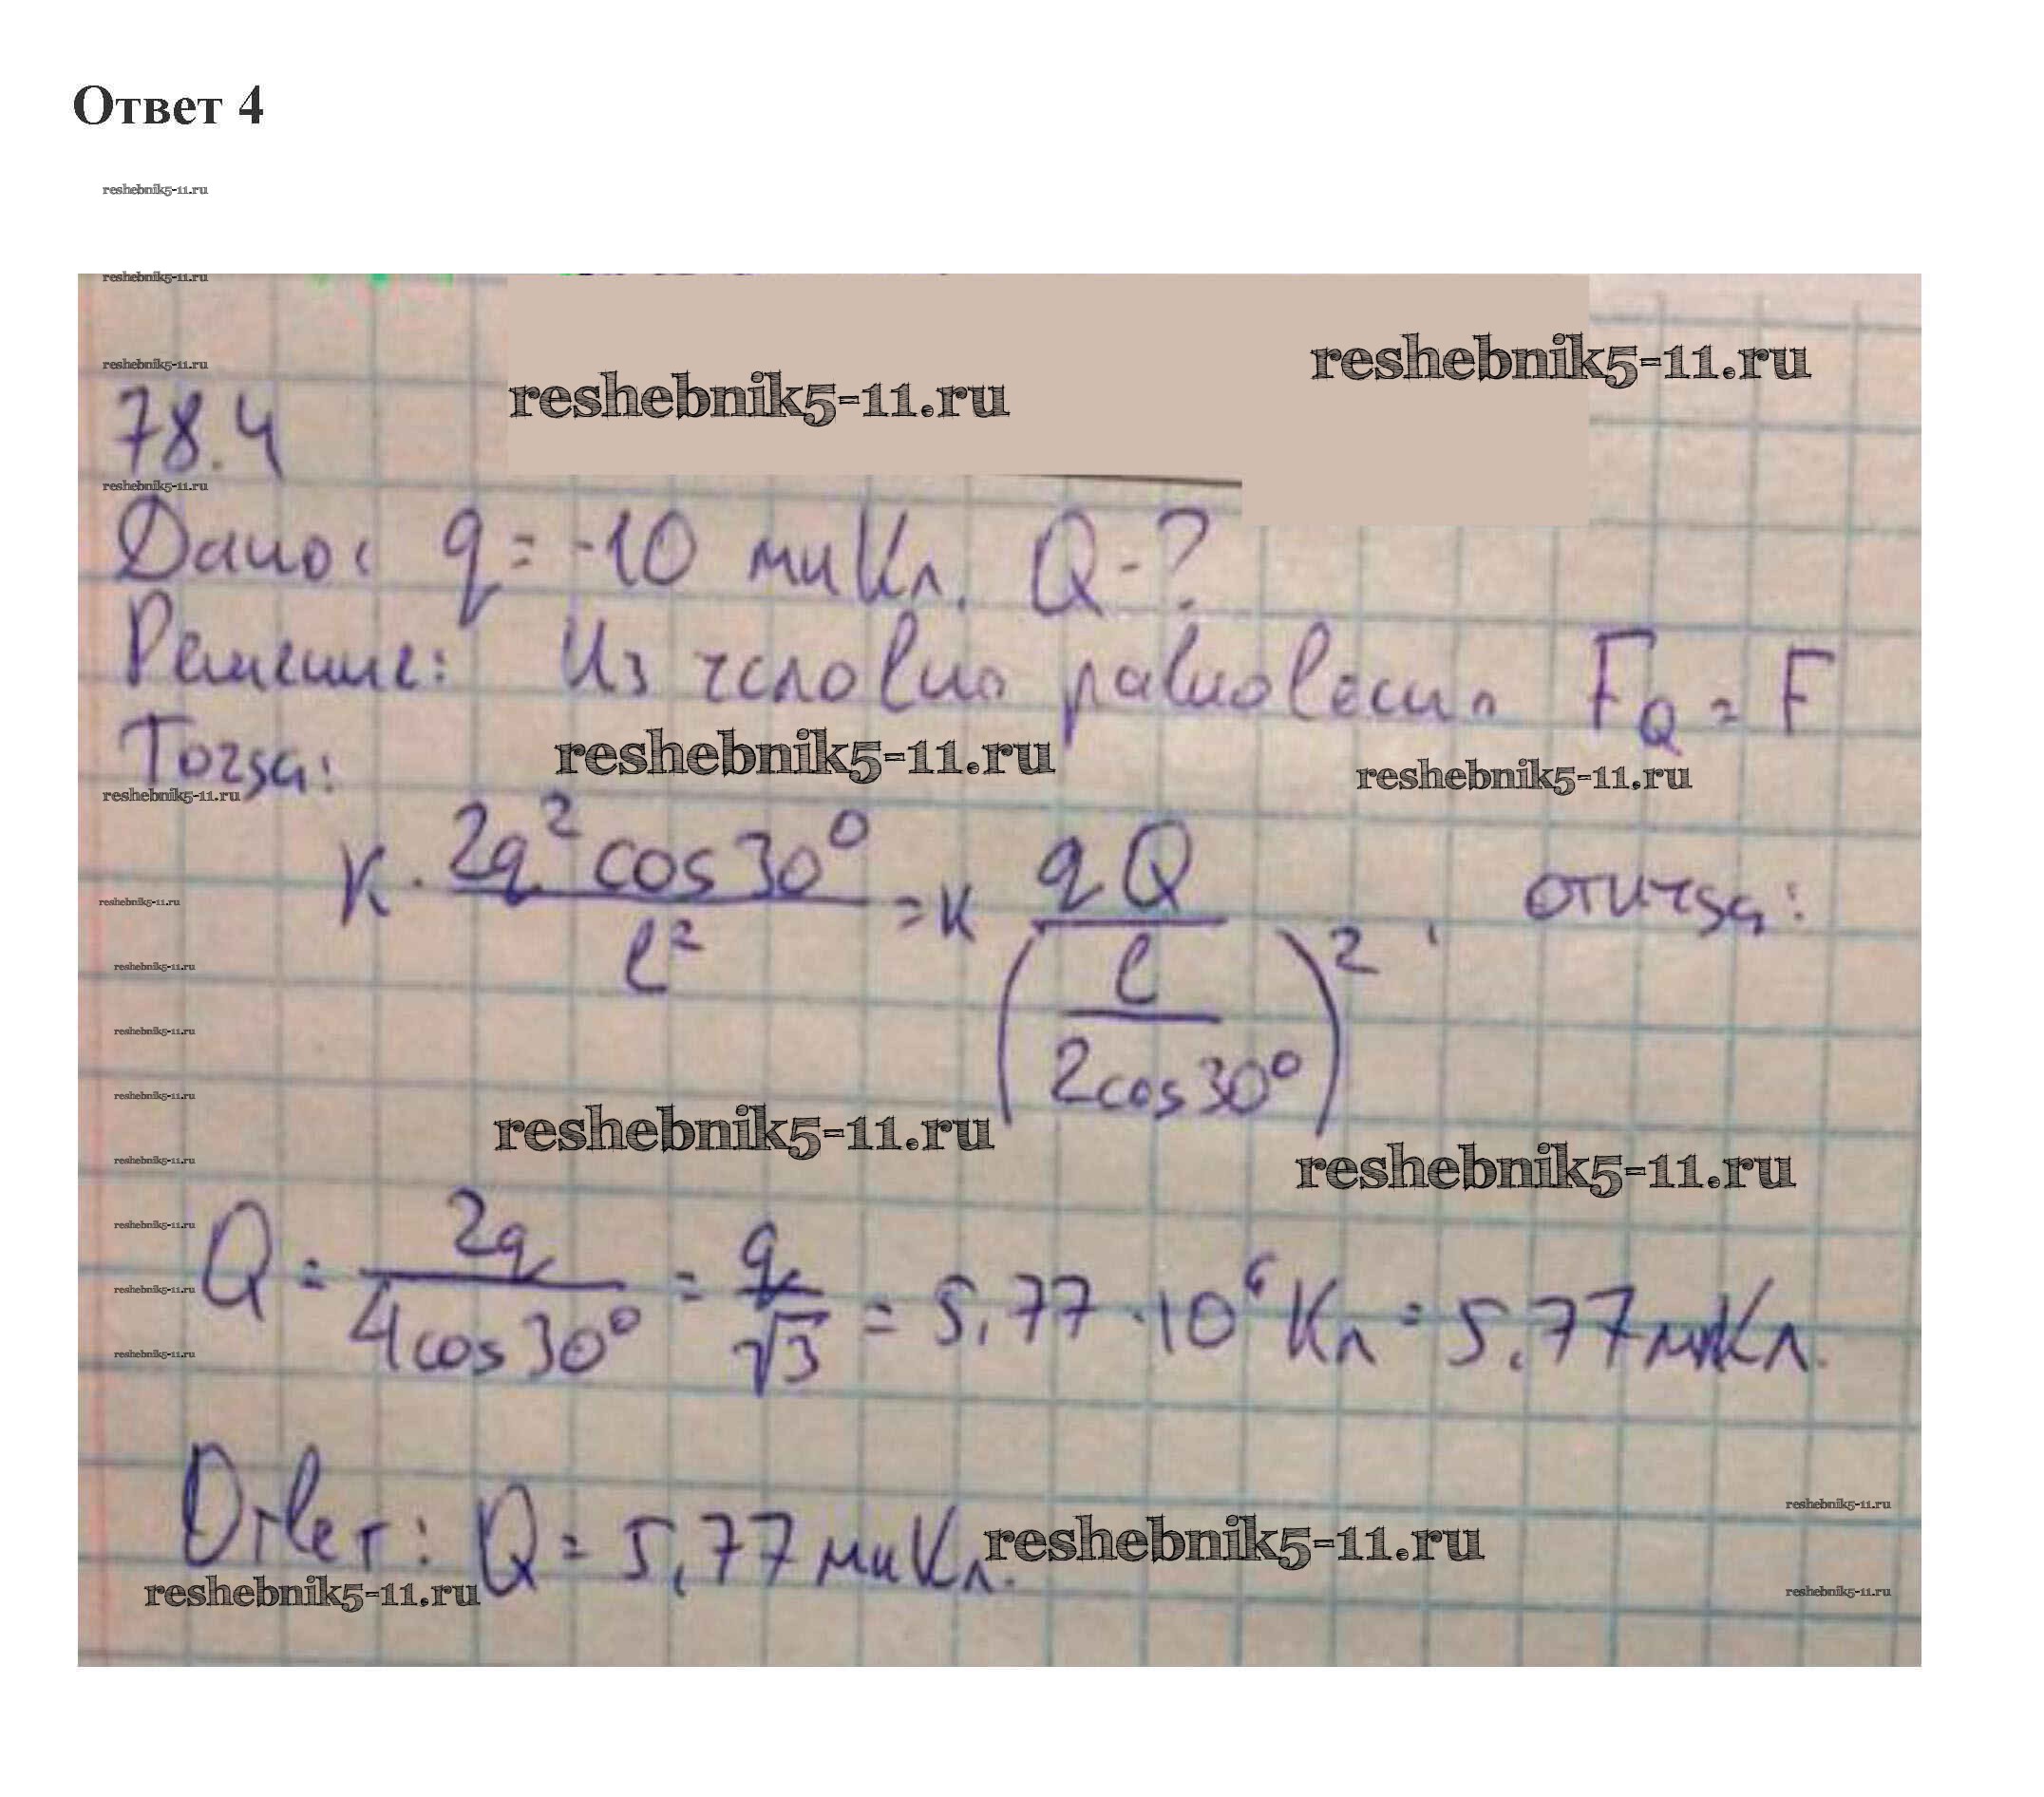 Ответ 4
reshebnik5-11.ru
reshebnik5-11.ru
reshebnik5-11.ru
reshebnik5-11.ru
reshebnik5-11.ru
78.4
reshebnik5-11.ru
Дано: q = -10 мкКл. Q - ?
Решение: Из условия равновесия F_Q = F
Тогда:
reshebnik5-11.ru
reshebnik5-11.ru
reshebnik5-11.ru
K · 2q² cos30° / l² = K qQ / (l / 2cos30°)², откуда:
reshebnik5-11.ru
reshebnik5-11.ru
reshebnik5-11.ru
reshebnik5-11.ru
reshebnik5-11.ru
reshebnik5-11.ru
reshebnik5-11.ru
reshebnik5-11.ru
Q = 2q / 4cos30° = q / √3 = 5,77 · 10⁶ Кл = 5,77 мкКл.
reshebnik5-11.ru
reshebnik5-11.ru
reshebnik5-11.ru
Ответ: Q = 5,77 мкКл.
reshebnik5-11.ru
reshebnik5-11.ru
reshebnik5-11.ru